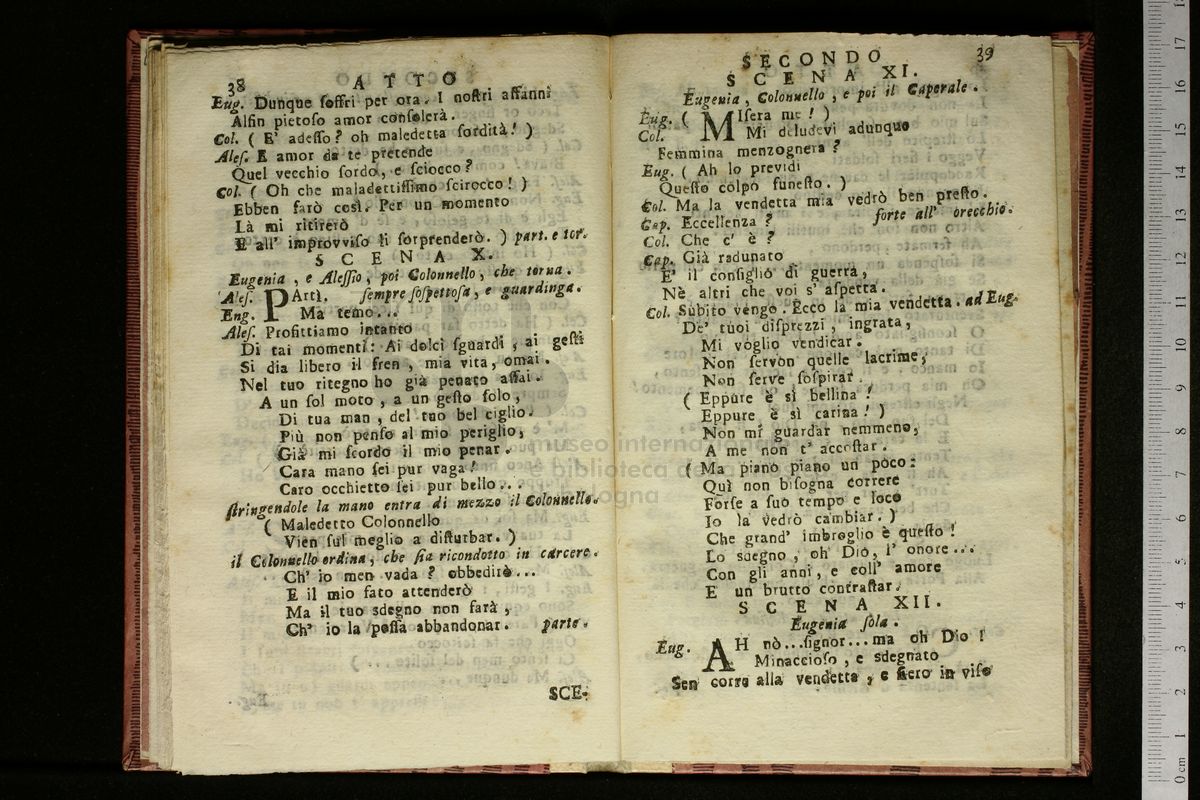 38
A T T O
Eug. Dunque ſoffri per ora. I noſtri affanni
Alfin pietoſo amor conſolerà.
Col. ( E' adeſſo? oh maledetta ſordità! )
Aleſ. E amor da te pretende
Quel vecchio ſordo, e ſciocco?
Col. ( Oh che maladettiſſimo ſcirocco! )
Ebben farò così. Per un momento
Là mi ritirerò
E all' improvviſo li ſorprenderò. ) part. e tor.
S C E N A X.
Eugenia, e Aleſſio, poi Colonnello, che torna.
Aleſ. PArtì. ſempre ſoſpettoſa, e guardinga.
Eug. Ma temo...
Aleſ. Profittiamo intanto
Di tai momenti: Ai dolci ſguardi, ai geſti
Si dia libero il fren, mia vita, omai.
Nel tuo ritegno ho già penato aſſai.
A un ſol moto, a un geſto ſolo,
Di tua man, del tuo bel ciglio.
Più non penſo al mio periglio,
Già mi ſcordo il mio penar.
Cara mano ſei pur vaga!
Caro occhietto ſei pur bello...
ſtringendole la mano entra di mezzo il Colonnello.
( Maledetto Colonnello
Vien ſul meglio a diſturbar. )
il Colonnello ordina, che ſia ricondotto in carcere.
Ch' io men vada? obbedirò...
E il mio fato attenderò
Ma il tuo sdegno non farà,
Ch' io la poſſa abbandonar. parte.
SCE-
SECONDO
39
S C E N A XI.
Eugenia, Colonnello, e poi il Caporale.
Eug. ( MIſera me! )
Col. Mi deludevi adunque
Femmina menzognera?
Eug. ( Ah lo previdi
Queſto colpo funeſto. )
Col. Ma la vendetta mia vedrò ben preſto.
Cap. Eccellenza? forte all' orecchio.
Col. Che c' è?
Cap. Già radunato
E' il conſiglio di guerra,
Nè altri che voi s' aſpetta.
Col. Subito vengo. Ecco la mia vendetta. ad Eug.
De' tuoi diſprezzi, ingrata,
Mi voglio vendicar.
Non ſervon quelle lacrime,
Non ſerve ſoſpirar.
( Eppure è sì bellina!
Eppure è sì carina! )
Non mi guardar nemmeno,
A me non t' accoſtar.
( Ma piano piano un poco:
Quì non biſogna correre
Forſe a ſuo tempo e loco
Io la vedrò cambiar. )
Che grand' imbroglio è queſto!
Lo sdegno, oh Dio, l' onore...
Con gli anni, e coll' amore
E un brutto contraſtar.
S C E N A XII.
Eugenia ſola.
Eug. AH nò...ſignor...ma oh Dio!
Minaccioſo, e sdegnato
Sen corre alla vendetta, e fiero in viſo
museo internazionale
e biblioteca della
bologna